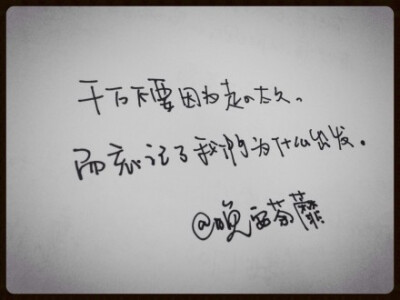 千万不要因为走的太久。
而忘记了我们为什么出发。
@晚